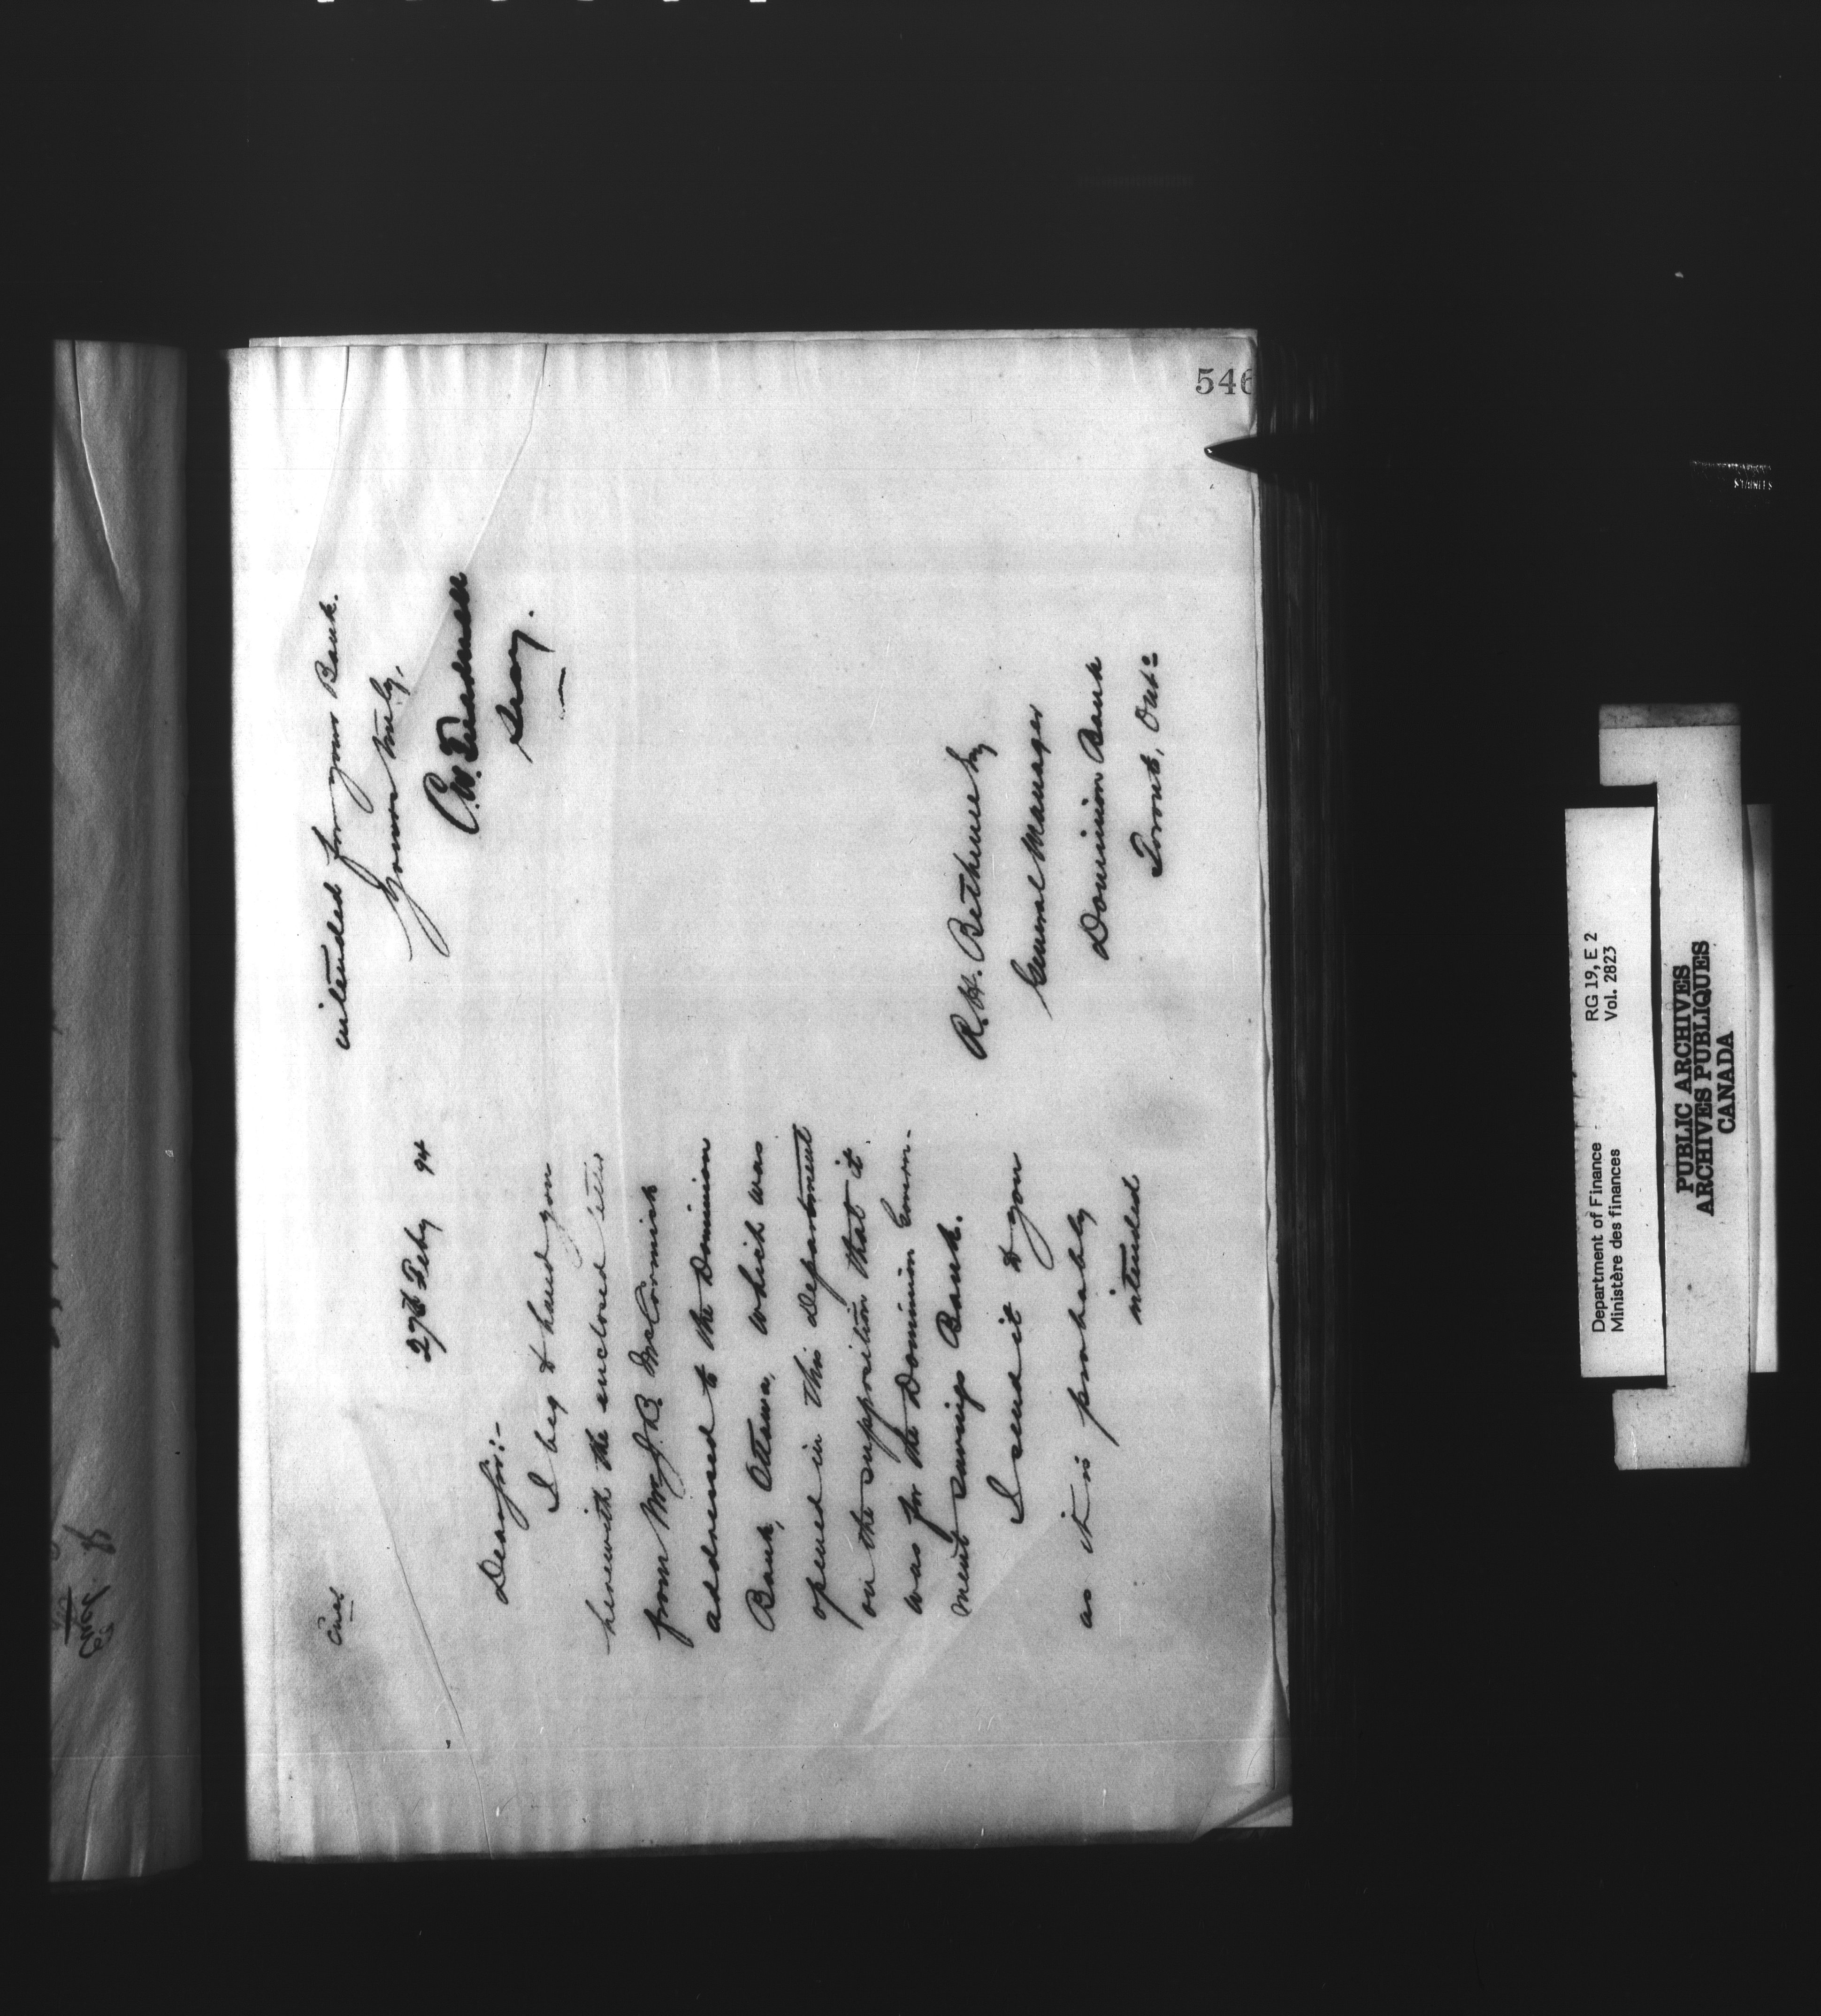 546
Encl
27th Feby 94
Dear Sir:-
I beg to hand you
herewith the enclosed letter
from Mr J. B. McCormick
addressed to the Dominion
Bank, Ottawa, which was
opened in this department
on the supposition that it
was for the Dominion Govern-
ment savings Bank.
I send it to you
as it is probably
intended
intended for your Bank.
Yours truly,
C.W. Treadwell
Secy.
R. H. Bethune Esq
General Manager
Dominion Bank
Toronto, Ont.
Department of Finance RG 19, E 2
Ministère des finances Vol. 2823
PUBLIC ARCHIVES
ARCHIVES PUBLIQUES
CANADA